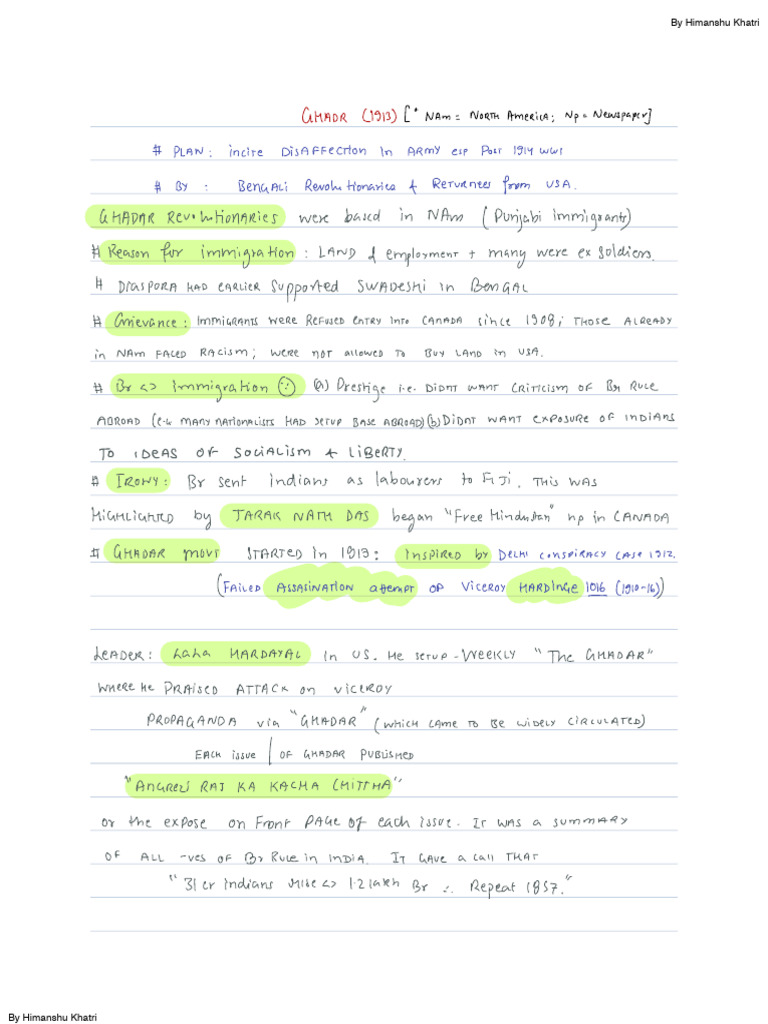 By Himanshu Khatri
GHADR (1913) [* NAm = North America; Np = Newspaper]
# PLAN: incite DISAFFECTION In ARMY esp Post 1914 WW1
# By: BENGALI Revolutionaries & Returnees from USA.
GHADAR Revolutionaries were based in NAm (Punjabi immigrants)
# Reason for immigration: LAND & employment + many were ex soldiers.
# DIASPORA HAD EARLIER Supported SWADESHI in BENGAL
# Grievance: IMMIGRANTS WERE REFUSED ENTRY INTO CANADA since 1908; THOSE ALREADY
in NAm FACED RACISM; WERE NOT ALLOWED TO BUY LAND in USA.
# Br <> Immigration ∵ (a) Prestige i.e. DIDNT WANT CRITICISM OF BR RULE
ABROAD (e.g. MANY NATIONALISTS HAD SETUP BASE ABROAD) (b) DIDNT WANT EXPOSURE OF INDIANS
TO IDEAS OF SOCIALISM & LIBERTY.
# IRONY: Br sent Indians as labourers to FIJI. THIS WAS
HIGHLIGHTED by TARAK NATH DAS began "Free Hindustan" np in CANADA
# GHADAR movt STARTED In 1913: INSPIRED by DELHI CONSPIRACY CASE 1912.
(FAILED ASSASINATION attempt OF VICEROY HARDINGE 1016 (1910-16))
LEADER: LaLa HARDAYAL in US. He setup - WEEKLY "The GHADAR"
WHERE HE PRAISED ATTACK on VICEROY
PROPAGANDA via "GHADAR" (WHICH CAME TO BE WIDELY CIRCULATED)
EACH issue OF GHADAR PUBLISHED
"ANGREZI RAJ KA KACHA CHITTHA"
or the expose on Front PAGE of each issue. It was a summary
OF ALL -ves OF Br Rule in INDIA. IT GAVE a call THAT
"31 cr Indians rise <> 1.2 lakh Br ∴ Repeat 1857."
By Himanshu Khatri